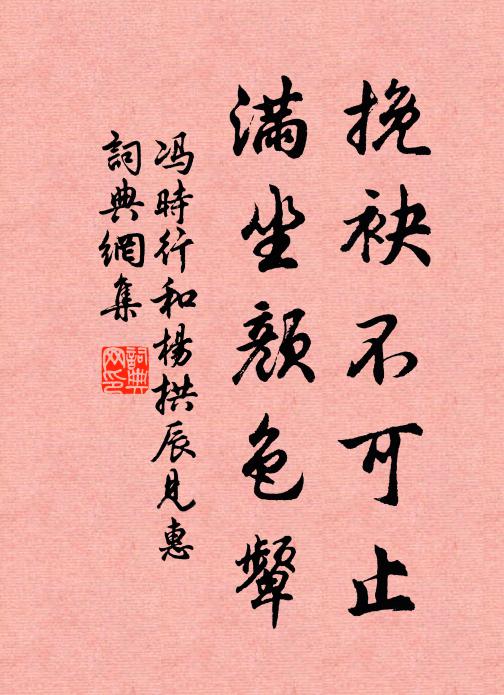 挽袂不可止
满坐颜色颦
冯時行和楊拱辰見惠
詞典網集
詞典網印